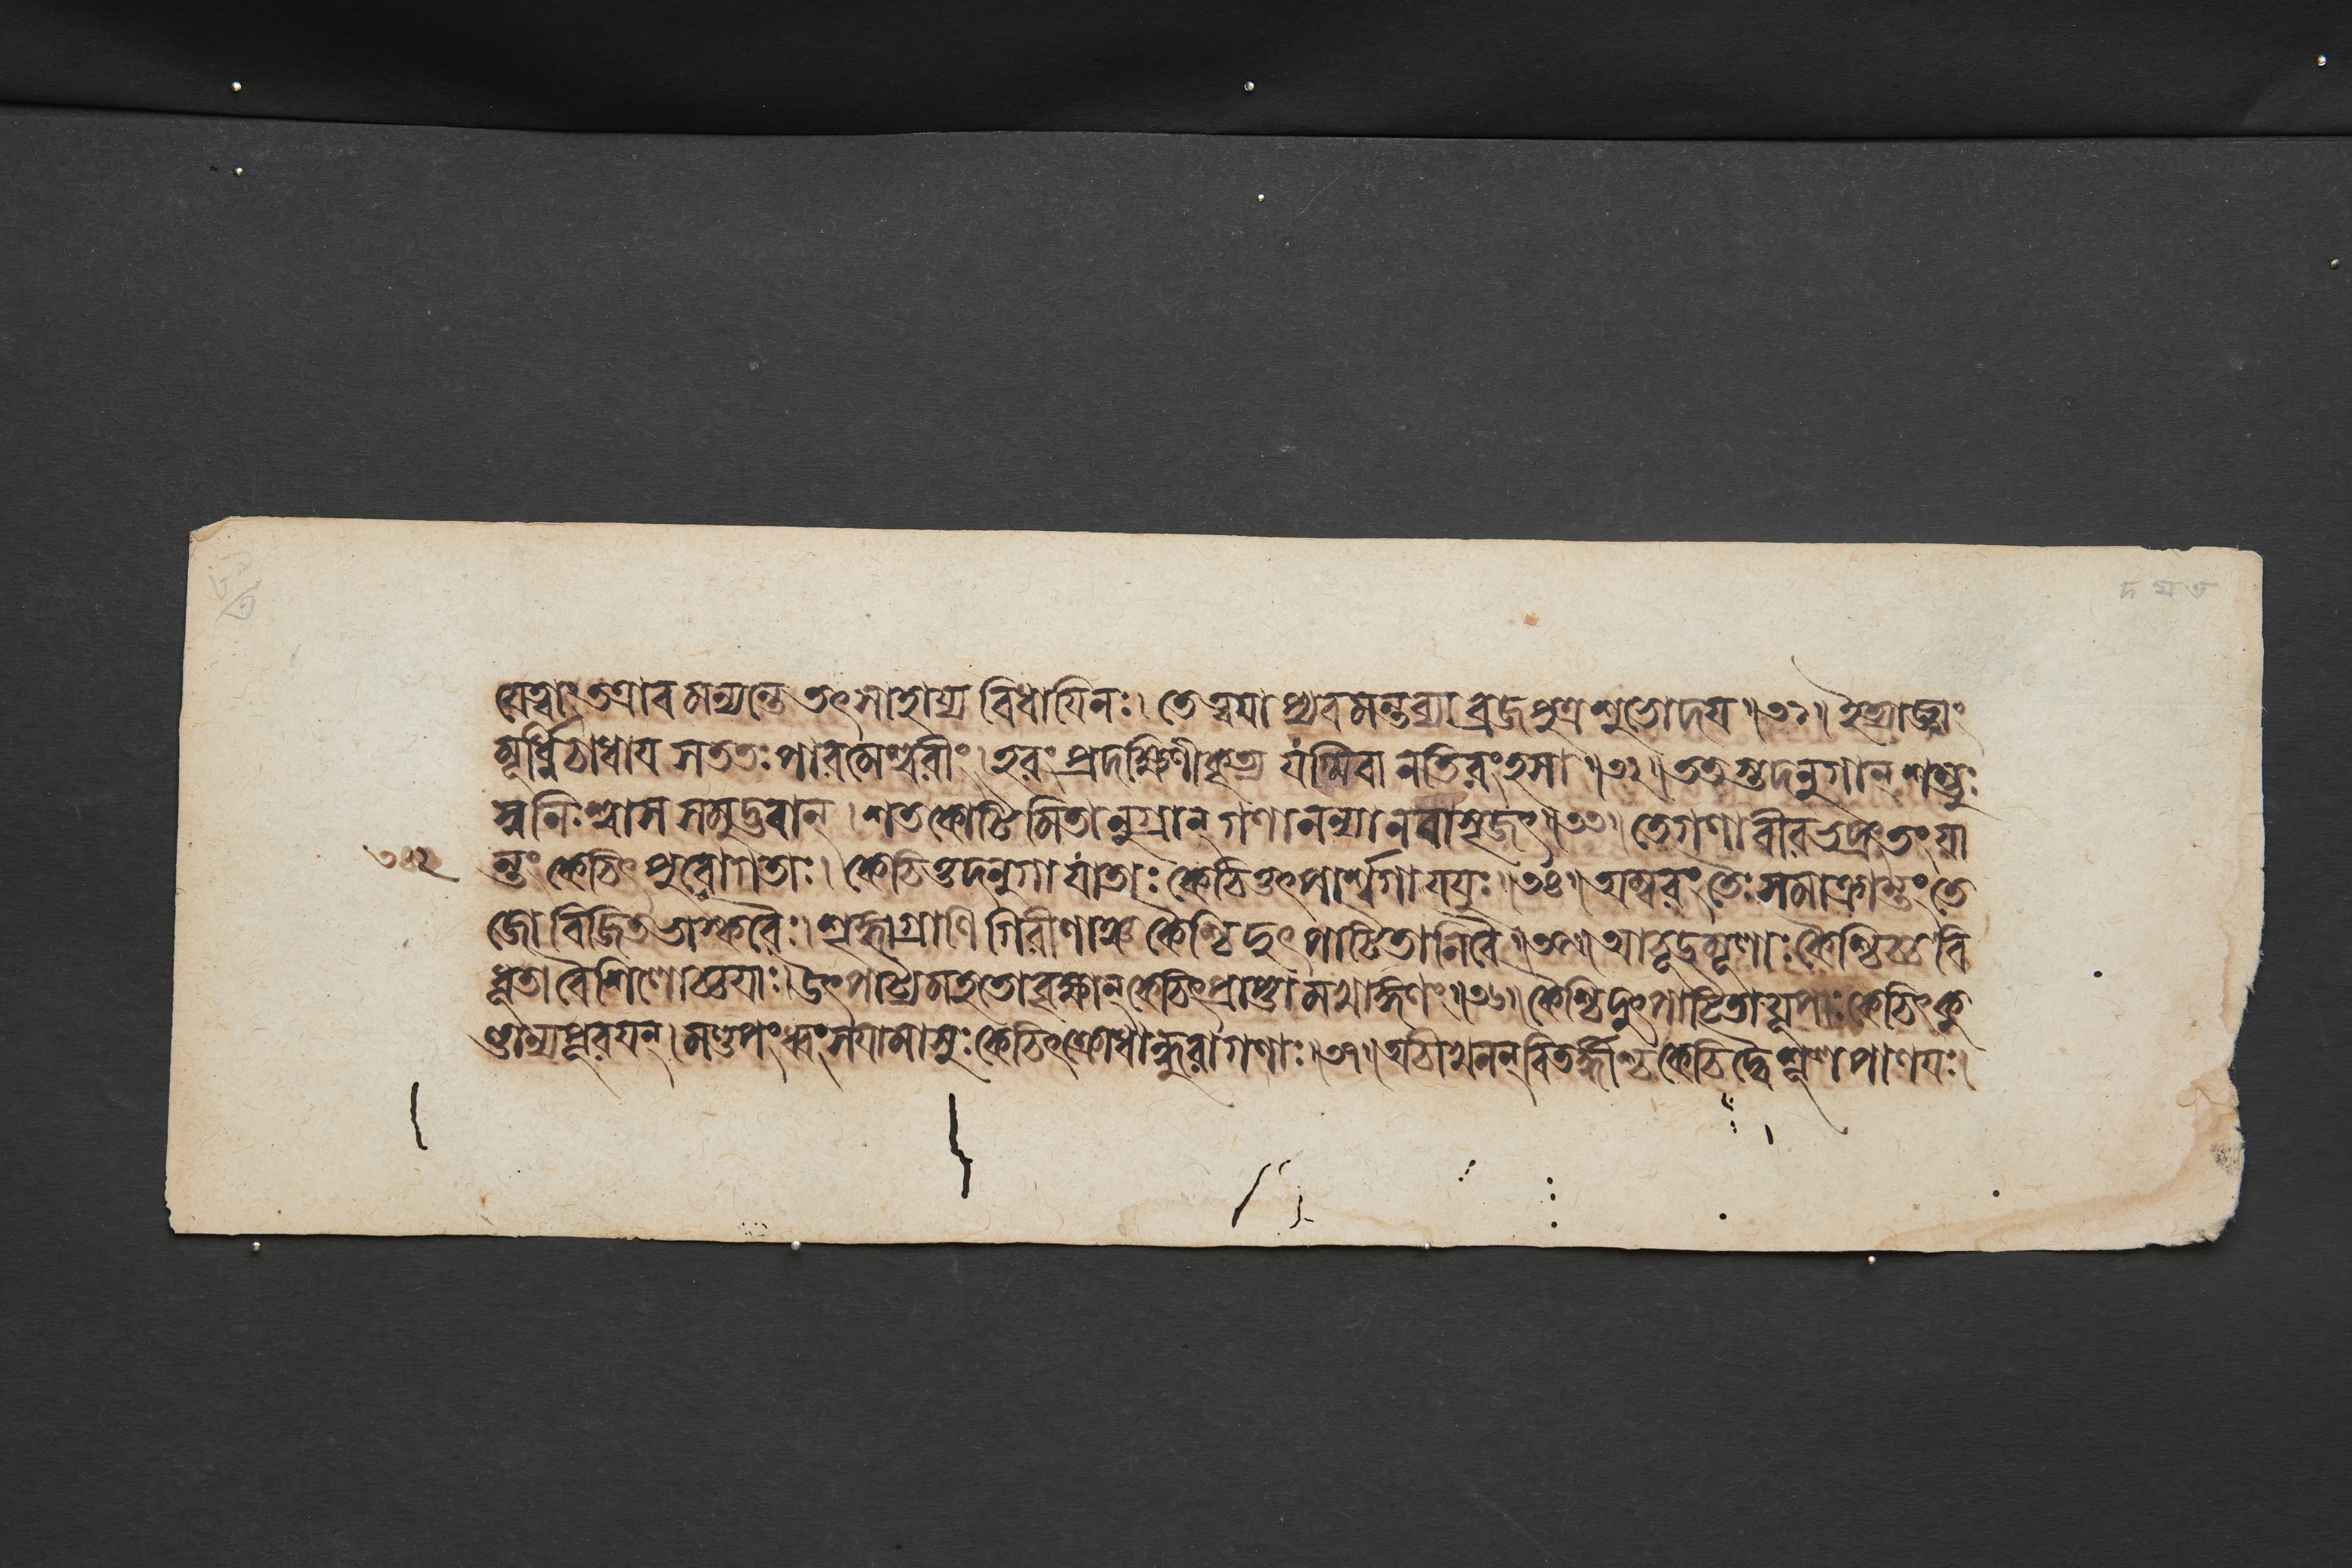 যেত্বাং তত্রাবমন্যন্তে তৎসাহায্যবিধায়িনঃ। তেত্বয়াপ্যবমন্তব্যা ব্রজপুত্রশুভোদয়॥৩১॥ ইত্যাজ্ঞাং
মূর্ধ্নিচাধায় সততঃ পারমেশ্বরীং। হরং প্রদক্ষিণীকৃত্য নতিরংহসা॥৩২॥ ততস্তদনুগান্ শম্ভুঃ
স্বনিঃশ্বাসসমুদ্ভবান্। শতকোটিমিতানুগ্রান্ গণানন্যানবাসৃজৎ॥৩৩॥ তেগণাবীরভদ্রং তং যা
ন্তং কেচিৎ পুরোগতাঃ। কেচিত্তদনুগা যাতাঃ কেচিত্তৎপার্শ্বগা যযুঃ॥৩৪॥ অম্বরং তৈঃ সমাক্রান্তং তে
জোবিজিতভাস্করৈঃ। শৃঙ্গাগ্রাণি গিরীণাঞ্চ কৈশ্চিদুৎপাটিতানিবৈ॥৩৫॥ কৈশ্চিচ্চ বি
ধৃতা বৈশিলোচ্চয়াঃ। উৎপাট্য মহতোবৃক্ষান্ কেচিৎপ্রাপ্তা মখাঙ্গণং॥৩৬॥ কৈশ্চিদুৎপাটিতাযূপাঃ কেচিৎ কু
ণ্ডান্যপূরয়ন্। মণ্ডপং ধ্বংসয়ামাসুঃ কেচিৎক্রোধোদ্ধুরাগণাঃ॥৩৭॥ অচীখনন্ বিতর্দ্দীশ্চ কেচিদ্বৈ শূলপাণয়ঃ।